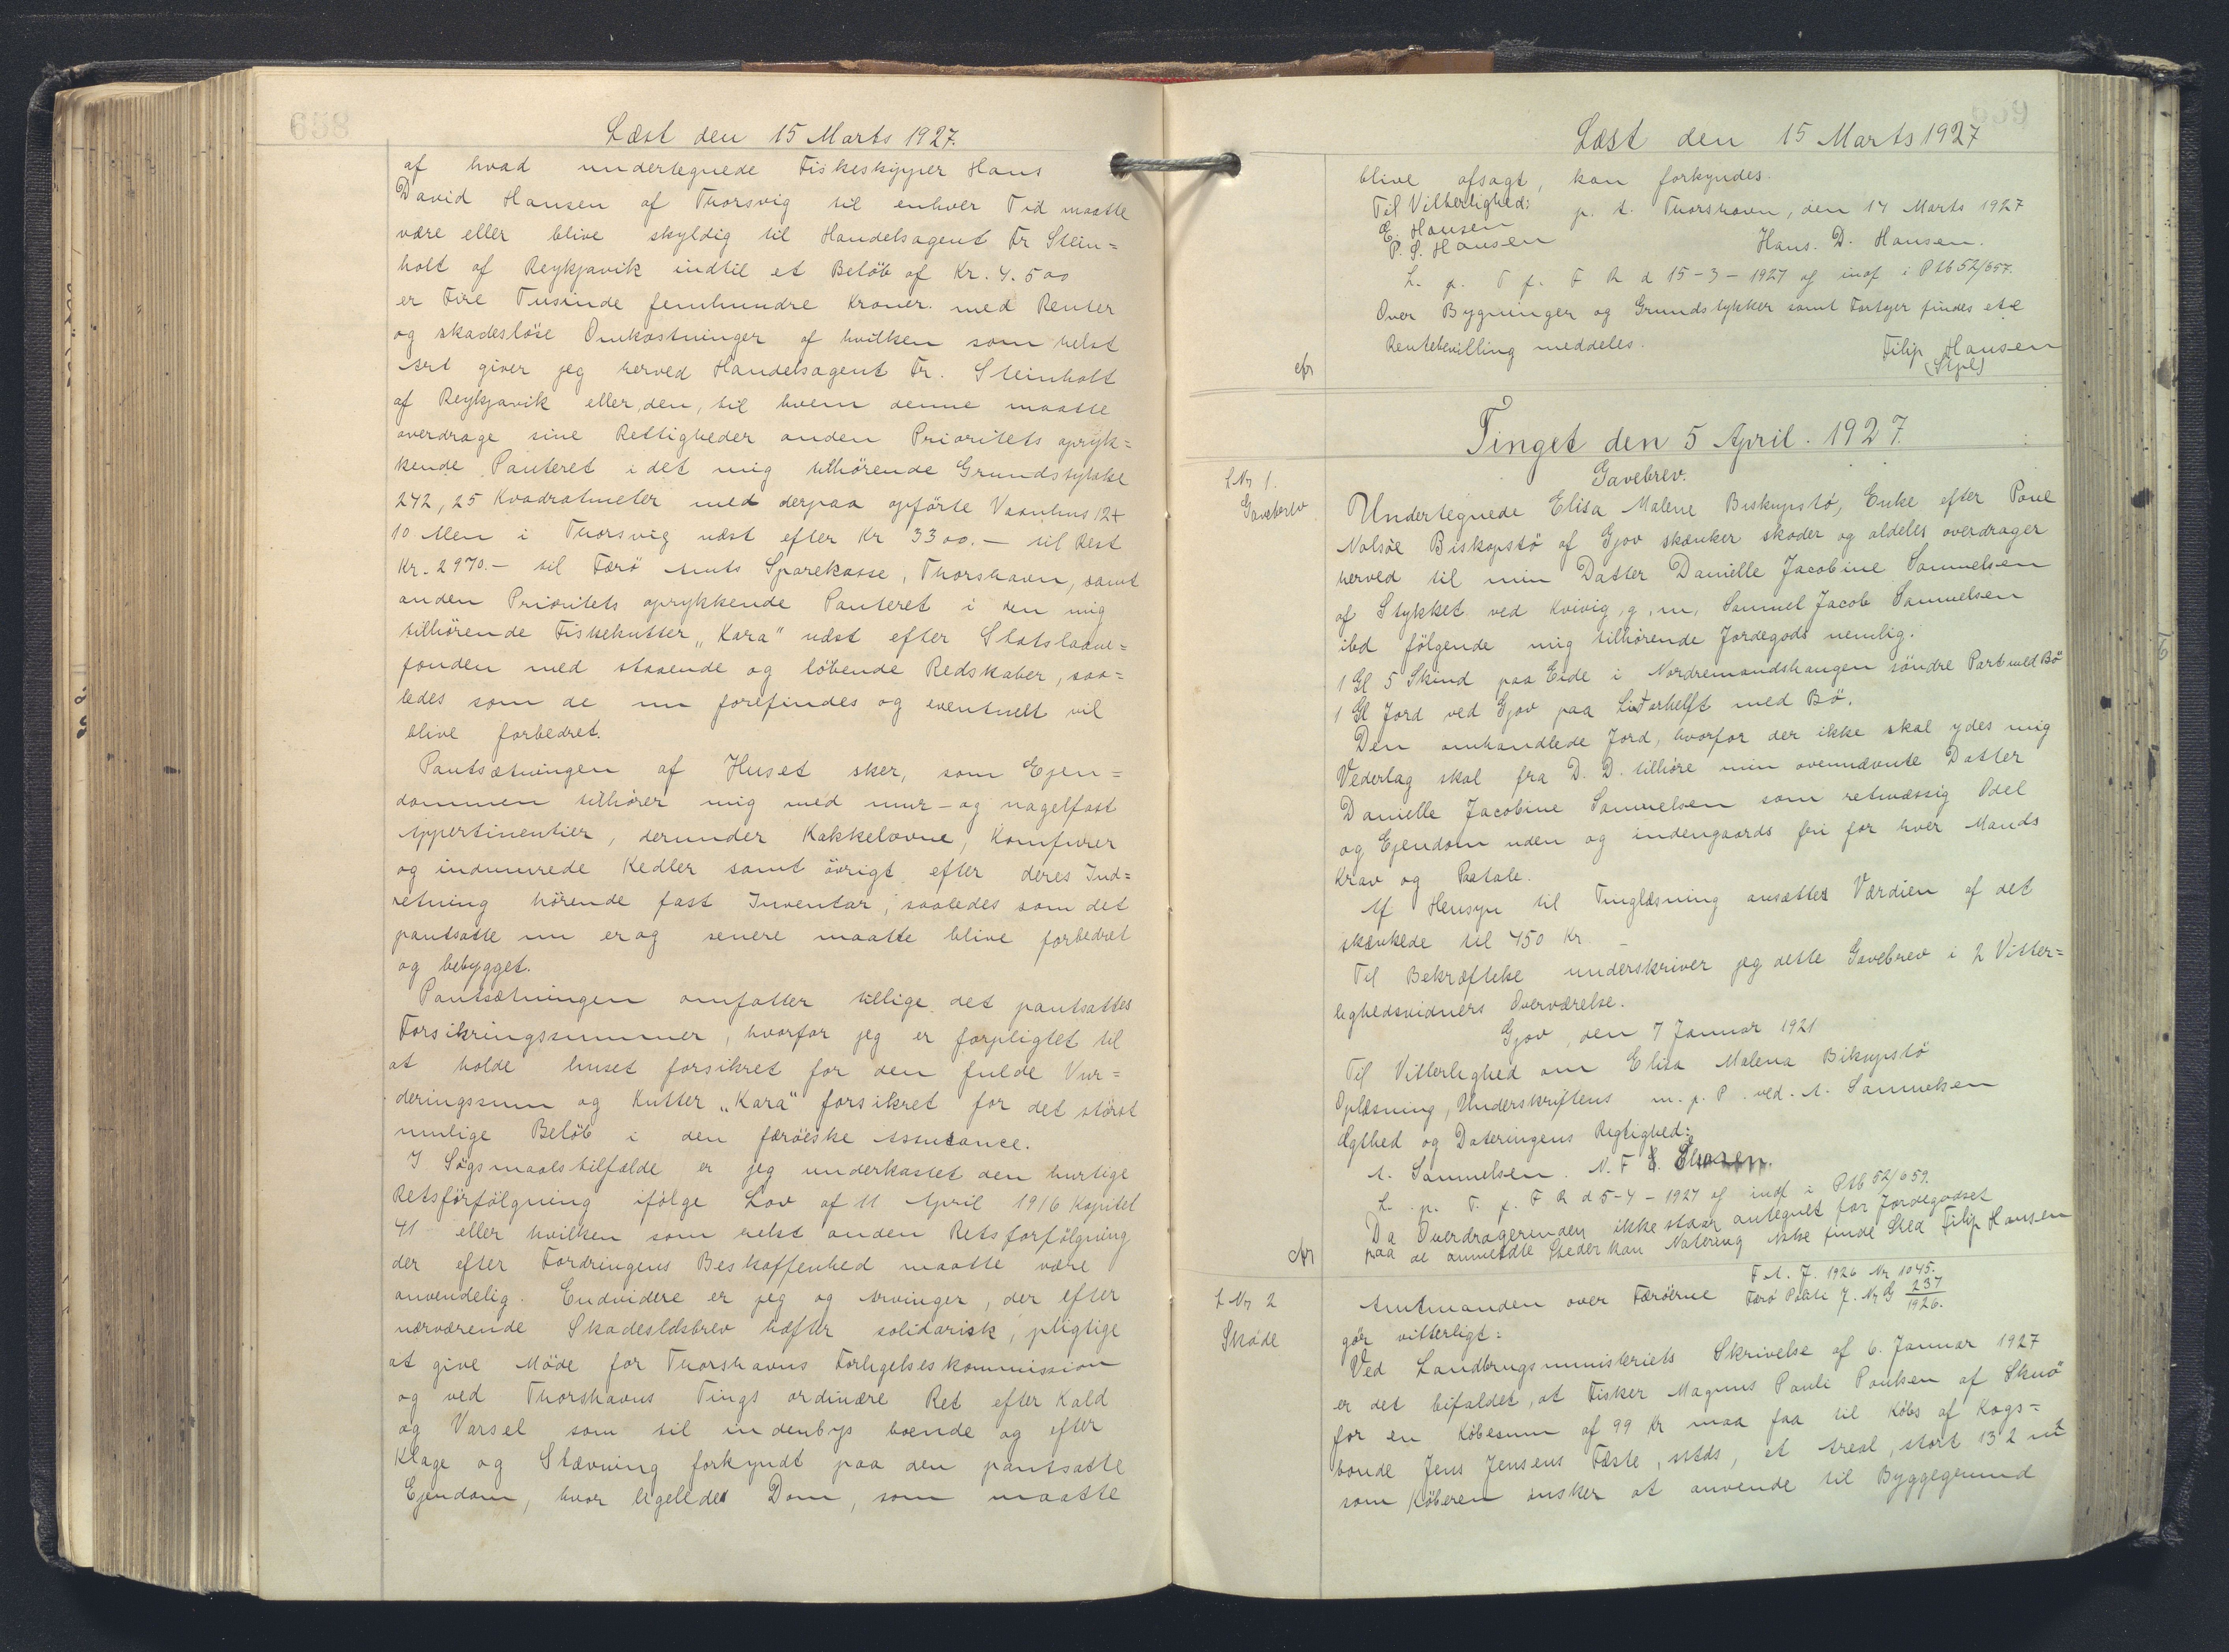 658
Læst den 15 Marts 1927.
af hvad undertegnede Fiskeskipper Hans
David Hansen af Thorsvig til enhver Tid maatte
være eller blive skyldig til Handelsagent Fr Stein=
holt af Reykjavik indtil et Beløb af Kr. 4.500
er Fire Tusinde femhundre Kroner. med Renter
og skadesløse Omkostninger af hvilken som helst
Art giver jeg herved Handelsagent Fr. Steinholt
af Reykjavik eller den, til hvem denne maatte
overdrage sine Rettigheder anden Prioritets opryk=
kende Panteret i det mig tilhørende Grundstykke
242,25 Kvadratmeter med derpaa opførte Vaanhus 12+
10 Alen i Thorsvig næst efter Kr 3300.— til Rest
Kr. 2970.— til Færø Amts Sparekasse, Thorshavn, samt
anden Prioritets oprykkende Panteret i den mig
tilhørende Fiskekutter „Kara" næst efter Statslaane=
fonden med staaende og løbende Redskaber, saa=
ledes som de nu forefindes og eventuelt vil
blive forbedret.
Pantsætningen af Huset sker, som Ejen=
dommen tilhører mig med mur- og nagelfast
Appertinentier, derunder Kakkelovne, Komfurer
og indmurede Kedler samt øvrigt efter deres Ind=
retning hørende fast Inventar, saaledes som det
pantsatte nu er og senere maatte blive forbedret
og bebygget.
Pantsætningen omfatter tillige det pantsattes
Forsikringssummer, hvorfor jeg er forpligtet til
at holde huset forsikret for den fulde Vur=
deringssum og Kutter „Kara" forsikret for det størst
mulige Beløb i den færøeske Assurance.
I Søgsmaalstilfælde er jeg underkastet den hurtige
Retsførfølgning ifølge Lov af 11 April 1916 Kapitel
41 eller hvilken som helst anden Retsforfølgning
der efter Fordringens Beskaffenhed maatte være
anvendelig. Endvidere er jeg og Arvinger, der efter
nærværende Skadesløsbrev hæfter solidarisk, pligtige
at give Møde for Thorshavns Forligelseskommission
og ved Thorshavns Tings ordinære Ret efter Kald
og Varsel som til indenbys boende og efter
Klage og Stævning forkyndt paa den pantsatte
Ejendom, hvor ligeledes Dom, som maatte
659
Læst den 15 Marts 1927
blive afsagt, kan forkyndes.
Til Vitterlighed: p. t. Thorshavn, den 14 Marts 1927
E. Hansen
P. S. Hansen Hans. D. Hansen.
L. p. T f. F R d 15-3-1927 og indf i Ptb 52/657.
Over Bygninger og Grundstykker samt Fartøjer findes ete
Rentebevilling meddeles.
Filip Hansen
Tinget den 5 April. 1927.
L Nr 1.
Gavebrev
Gavebrev.
Undertegnede Elisa Malene Biskupstø, Enke efter Poul
Nolsøe Biskopstø af Gjov skænker skøder og aldeles overdrager
herved til min Datter Danielle Jacobine Samuelsen
af Stykket ved Kvivig, g, m, Samuel Jacob Samuelsen
ibd følgende mig tilhørende Jordegods nemlig:
1 Gl 5 Skind paa Eide i Nordremandshaugen søndre Part med Bø
1 Gl Jord ved Gjov paa med Bø.
Den omhandlede Jord, hvorfor der ikke skal ydes mig
Vederlag skal fra D. D. tilhøre min ovennævnte Datter
Danielle Jacobine Samuelsen som retmæssig Odel
og Ejendom uden og indengaards fri for hver Mands
Krav og Paatale.
Af Hensyn til Tinglæsning ansættes Værdien af det
skænkede til 450 Kr —
Til Bekræftelse underskriver jeg dette Gavebrev i 2 Vitter=
lighedsvidners Overværelse.
Gjov, den 7 Januar 1921
Til Vitterlighed om Elisa Malena Bikupstø
Oplæsning, Underskriftens m. f. P. ved. A. Samuelsen
Ægthed og Dateringens Rigtighed:
A. Samuelsen. N. F
L. p. T. f. F R d 5-4-1927 og indf i Ptb 52/659.
Da Overdragerinden ikke staar antegnet for Jordegodset
paa de anmeldte Steder kan Notering ikke finde Sted Filip Hansen
L Nr 2
Skøde
F. A. J. 1926 Nr 1045.
Amtmanden over Færøerne Færø Politi J. Nr G 237/1926.
gør vitterligt:
Ved Landbrugsministeriets Skrivelse af 6. Januar 1927
er det bifaldet, at Fisker Magnus Pauli Poulsen af Skuø
for en Købesum af 99 Kr maa faa til Købs af Kogs=
bonde Jens Jensens Fæste, sstds, et Areal, stort 132 m²
som Køberen ønsker at anvende til Byggegrund